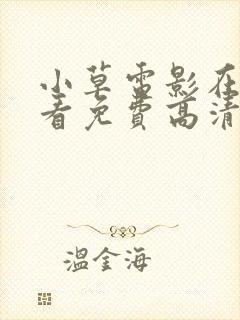 小草雷影在
看免费高清
温金海